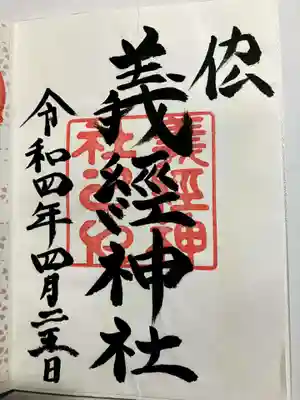 義經神社
令和四年四月二五日
義經神
社之印